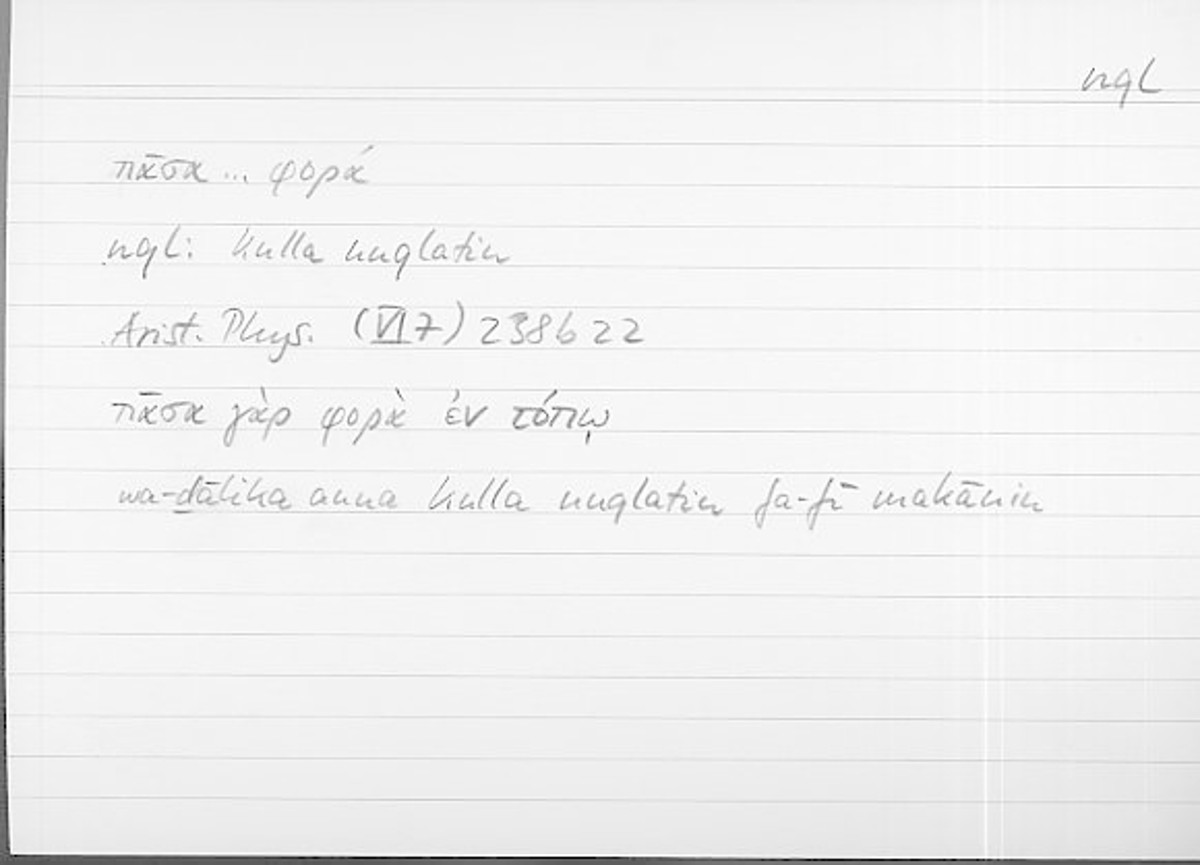 nql
πᾶσα ... φορά
nql: kulla nuqlatin
Arist. Phys. (VI 7) 238b 22
πᾶσα γὰρ φορὰ ἐν τόπῳ
wa-ḏālika anna kulla nuqlatin fa-fī makānin